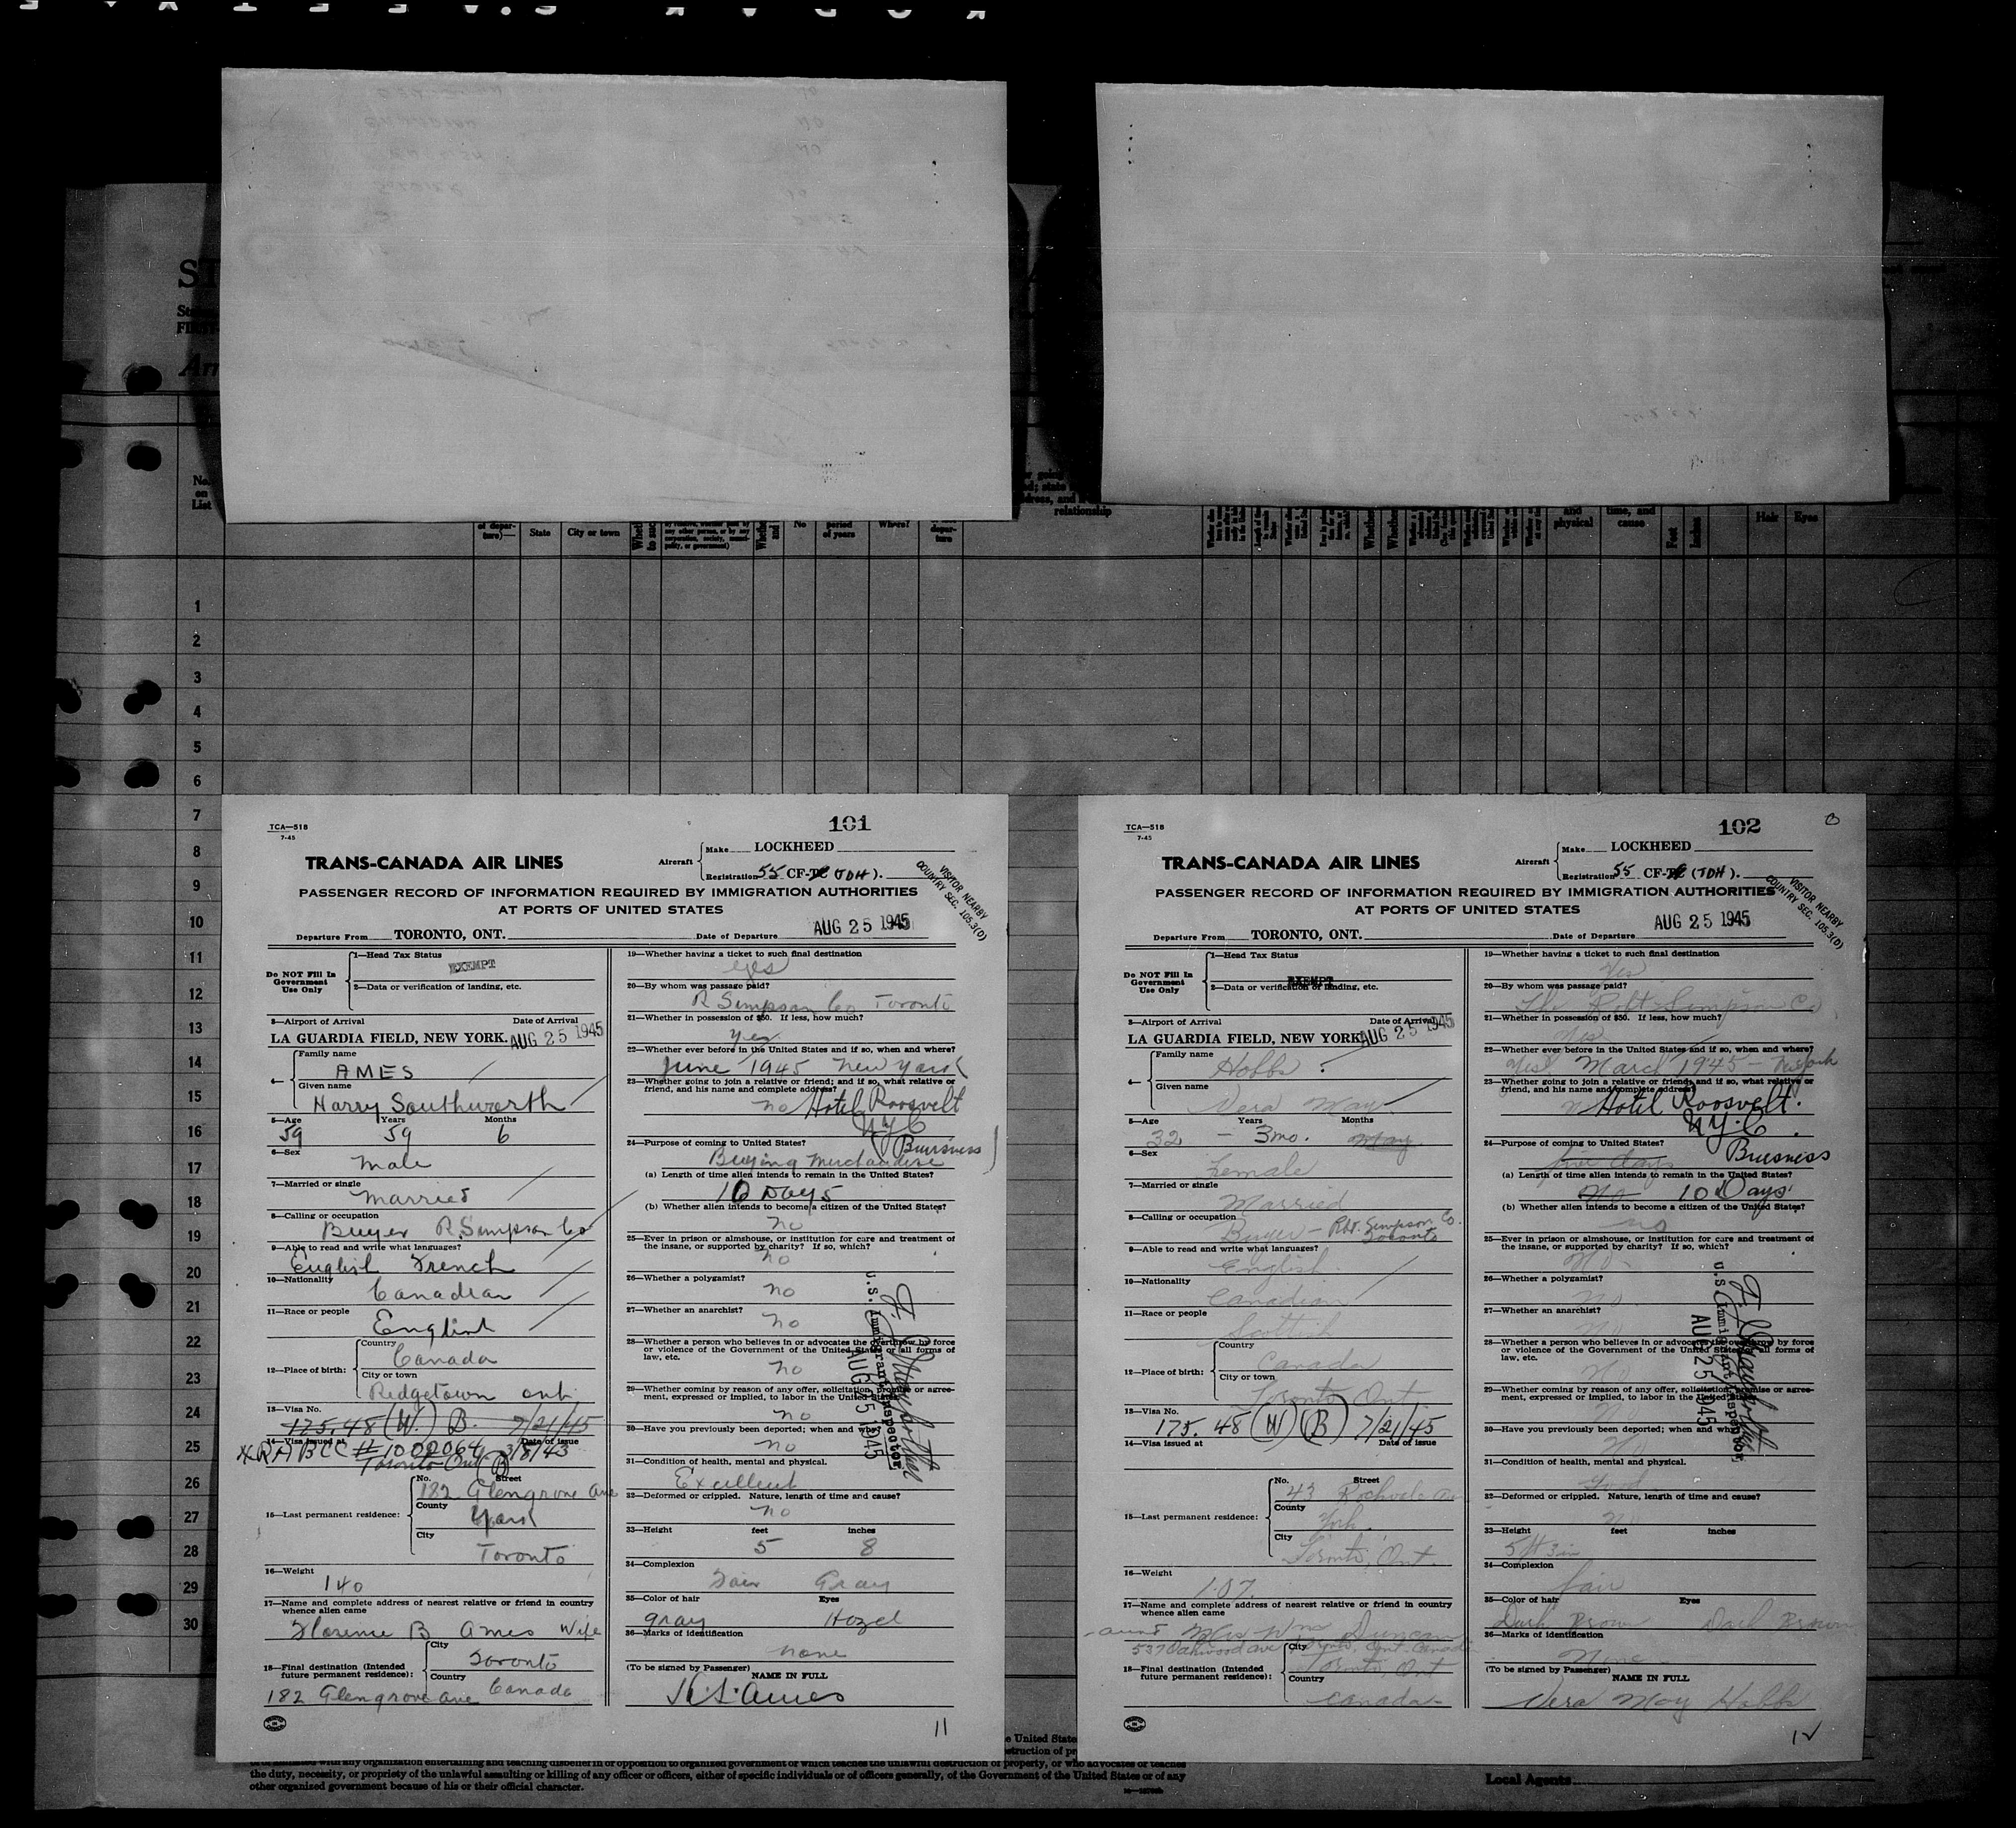 No.
on
List
of depar-
ture)—
State
City or town
No
period
of years
Where?
depar-
ture
relationship
and
physical
time, and
cause
Feet
Inches
Hair
Eyes
1
2
3
4
5
6
7
8
9
10
11
12
13
14
15
16
17
18
19
20
21
22
23
24
25
26
27
28
29
30
TCA—518
7-45
101
TRANS-CANADA AIR LINES
Aircraft
Make LOCKHEED
Registration 55 CF-T (TDH).
VISITOR NEARBY
COUNTRY SEC. 105.3(D)
PASSENGER RECORD OF INFORMATION REQUIRED BY IMMIGRATION AUTHORITIES
AT PORTS OF UNITED STATES
Departure From TORONTO, ONT.
Date of Departure AUG 25 1945
Do NOT Fill In
Government
Use Only
1—Head Tax Status
EXEMPT
2—Data or verification of landing, etc.
3—Airport of Arrival Date of Arrival
LA GUARDIA FIELD, NEW YORK. AUG 25 1945
4—
Family name
AMES
Given name
Harry Southworth
5—Age Years Months
59 59 6
6—Sex
Male
7—Married or single
Married
8—Calling or occupation
Buyer R. Simpson Co
9—Able to read and write what languages?
English French
10—Nationality
Canadian
11—Race or people
English
12—Place of birth:
Country
Canada
City or town
Ridgetown Ont.
13—Visa No.
175.48 (W.) B. 7/21/45
14—Visa issued at Date of issue
XRABCC # 1002064 3/8/43
Toronto Ont (B)
15—Last permanent residence:
No. Street
182 Glengrove Ave
County
York
City
Toronto
16—Weight
140
17—Name and complete address of nearest relative or friend in country
whence alien came
Florence B Ames Wife
18—Final destination (Intended
future permanent residence):
City
Toronto
Country
Canada
182 Glengrove Ave
19—Whether having a ticket to such final destination
yes
20—By whom was passage paid?
R Simpson Co Toronto
21—Whether in possession of $50. If less, how much?
Yes
22—Whether ever before in the United States and if so, when and where?
June 1945 New York
23—Whether going to join a relative or friend; and if so, what relative or
friend, and his name and complete address?
no Hotel Roosvelt
N.Y.C
24—Purpose of coming to United States?
Buying Merchandise (Buisness)
(a) Length of time alien intends to remain in the United States?
10 Days
(b) Whether alien intends to become a citizen of the United States?
no
25—Ever in prison or almshouse, or institution for care and treatment of
the insane, or supported by charity? If so, which?
no
26—Whether a polygamist?
no
27—Whether an anarchist?
no
28—Whether a person who believes in or advocates the overthrow by force
or violence of the Government of the United States or all forms of
law, etc.
no
29—Whether coming by reason of any offer, solicitation, promise or agree-
ment, expressed or implied, to labor in the United States?
no
30—Have you previously been deported; when and why?
no
31—Condition of health, mental and physical.
Excellent
32—Deformed or crippled. Nature, length of time and cause?
no
33—Height feet inches
5 8
34—Complexion
Fair Gray
35—Color of hair Eyes
gray Hazel
36—Marks of identification
none
(To be signed by Passenger) NAME IN FULL
H. S. Ames
U.S. Immigrant Inspector
AUG 25 1945
11
TCA—518
7-45
102
TRANS-CANADA AIR LINES
Aircraft
Make LOCKHEED
Registration 55 CF-T (TDH).
VISITOR NEARBY
COUNTRY SEC. 105.3(D)
PASSENGER RECORD OF INFORMATION REQUIRED BY IMMIGRATION AUTHORITIES
AT PORTS OF UNITED STATES
Departure From TORONTO, ONT.
Date of Departure AUG 25 1945
Do NOT Fill In
Government
Use Only
1—Head Tax Status
EXEMPT
2—Data or verification of landing, etc.
3—Airport of Arrival Date of Arrival
LA GUARDIA FIELD, NEW YORK. AUG 25 1945
4—
Family name
Hobbs
Given name
Vera May
5—Age Years Months
32 – 3 mo. May
6—Sex
Female
7—Married or single
Married
8—Calling or occupation
Buyer – Robt. Simpson Co.
Toronto
9—Able to read and write what languages?
English
10—Nationality
Canadian
11—Race or people
Scottish
12—Place of birth:
Country
Canada
City or town
Toronto Ont.
13—Visa No.
175.48 (W) (B) 7/21/45
14—Visa issued at Date of issue
15—Last permanent residence:
No. Street
43
County
York
City
Toronto, Ont.
16—Weight
107
17—Name and complete address of nearest relative or friend in country
whence alien came
– aunt Mrs Wm Duncan
537 Oakwood ave Toronto, Ont. Canada
18—Final destination (Intended
future permanent residence):
City
Toronto, Ont
Country
Canada
19—Whether having a ticket to such final destination
Yes
20—By whom was passage paid?
The Robt Simpson Co
21—Whether in possession of $50. If less, how much?
Yes
22—Whether ever before in the United States and if so, when and where?
Yes March 1945 – N. York
23—Whether going to join a relative or friend; and if so, what relative or
friend, and his name and complete address?
Hotel Roosvelt.
N.Y.C.
24—Purpose of coming to United States?
five days Buisness
(a) Length of time alien intends to remain in the United States?
No 10 Days
(b) Whether alien intends to become a citizen of the United States?
no
25—Ever in prison or almshouse, or institution for care and treatment of
the insane, or supported by charity? If so, which?
No
26—Whether a polygamist?
No
27—Whether an anarchist?
No
28—Whether a person who believes in or advocates the overthrow by force
or violence of the Government of the United States or all forms of
law, etc.
No
29—Whether coming by reason of any offer, solicitation, promise or agree-
ment, expressed or implied, to labor in the United States?
No
30—Have you previously been deported; when and why?
No
31—Condition of health, mental and physical.
Good
32—Deformed or crippled. Nature, length of time and cause?
No
33—Height feet inches
5 ft 3 in
34—Complexion
fair
35—Color of hair Eyes
Dark Brown Dark Brown
36—Marks of identification
None
(To be signed by Passenger) NAME IN FULL
Vera May Hobbs
U.S. Immigrant Inspector
AUG 25 1945
12
the duty, necessity, or propriety of the unlawful assaulting or killing of any officer or officers, either of specific individuals or of officers generally, of the Government of the United States or of any
other organized government because of his or their official character.
Local Agents